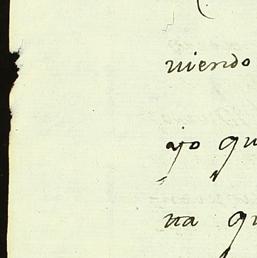 niendo
ajo qu
na qu